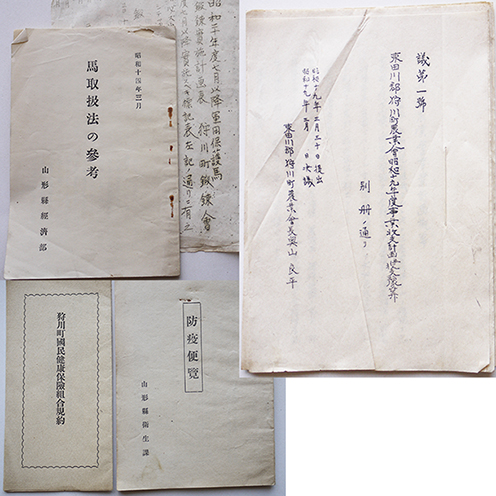 昭和十四年三月
馬取扱法の參考
山形縣經濟部
昭和二十年度七月以降軍用保護馬
鍛鍊實施計画表 狩川町鍛鍊會
議第一號
東田川郡狩川町農業會昭和十九年度事業收支計画
別册ノ通リ
昭和十九年二月二十日提出
昭和十九年 月 日決議
東田川郡狩川町農業會長奥山良平
狩川町國民健康保險組合規約
防疫便覽
山形縣衞生課